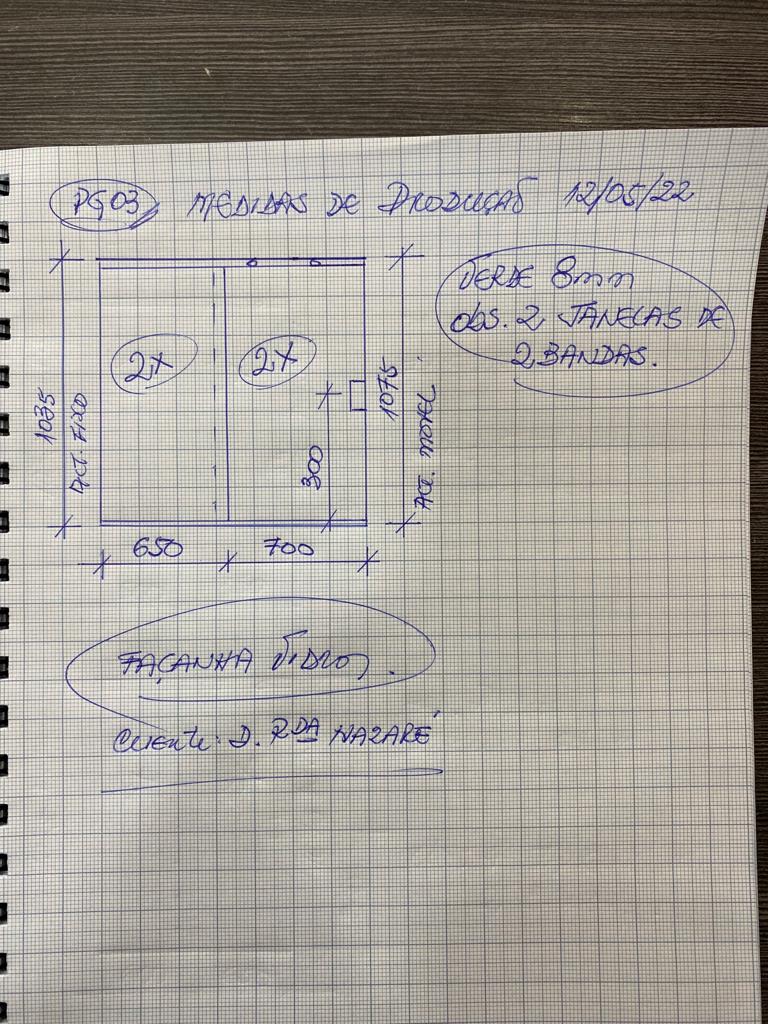 PG03 MEDIDAS DE PRODUÇÃO 12/05/22
VERDE 8mm
obs. 2 JANELAS DE
2 BANDAS.
2X 2X
1035
ALT. FIXO
300
1075
ALT. MOVEL.
650 700
FAÇANHA VIDROS.
Cliente: D. RDA NAZARÉ